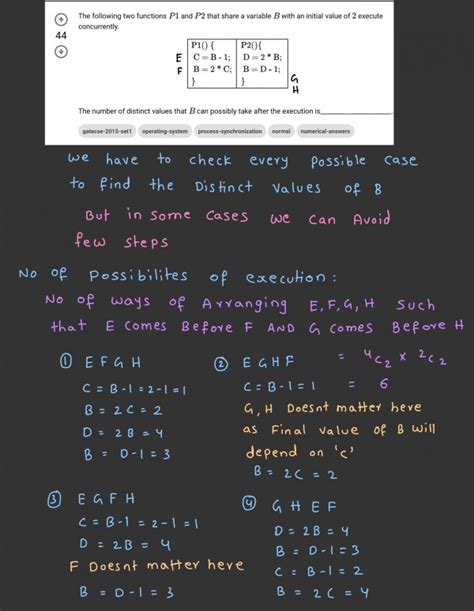 The following two functions P1 and P2 that share a variable B with an initial value of 2 execute
concurrently.
44
P1() { P2(){
E C = B - 1; D = 2 * B;
F B = 2 * C; B = D - 1; G
} } H
The number of distinct values that B can possibly take after the execution is
gatecse-2015-set1 operating-system process-synchronization normal numerical-answers
we have to check every possible case
to find the Distinct values of B
But in some cases we can Avoid
few steps
No of Possibilites of execution :
No of ways of Arranging E, F, G, H Such
that E comes Before F AND G comes Before H
① E F G H
C = B-1 = 2-1 = 1
B = 2C = 2
D = 2B = 4
B = D-1 = 3
② E G H F
C = B-1 = 1
= ⁴C₂ × ²C₂
= 6
G, H Doesnt matter here
as Final value of B will
depend on 'c'
B = 2C = 2
③ E G F H
C = B-1 = 2-1 = 1
D = 2B = 4
F Doesnt matter here
B = D-1 = 3
④ G H E F
D = 2B = 4
B = D-1 = 3
C = B-1 = 2
B = 2C = 4